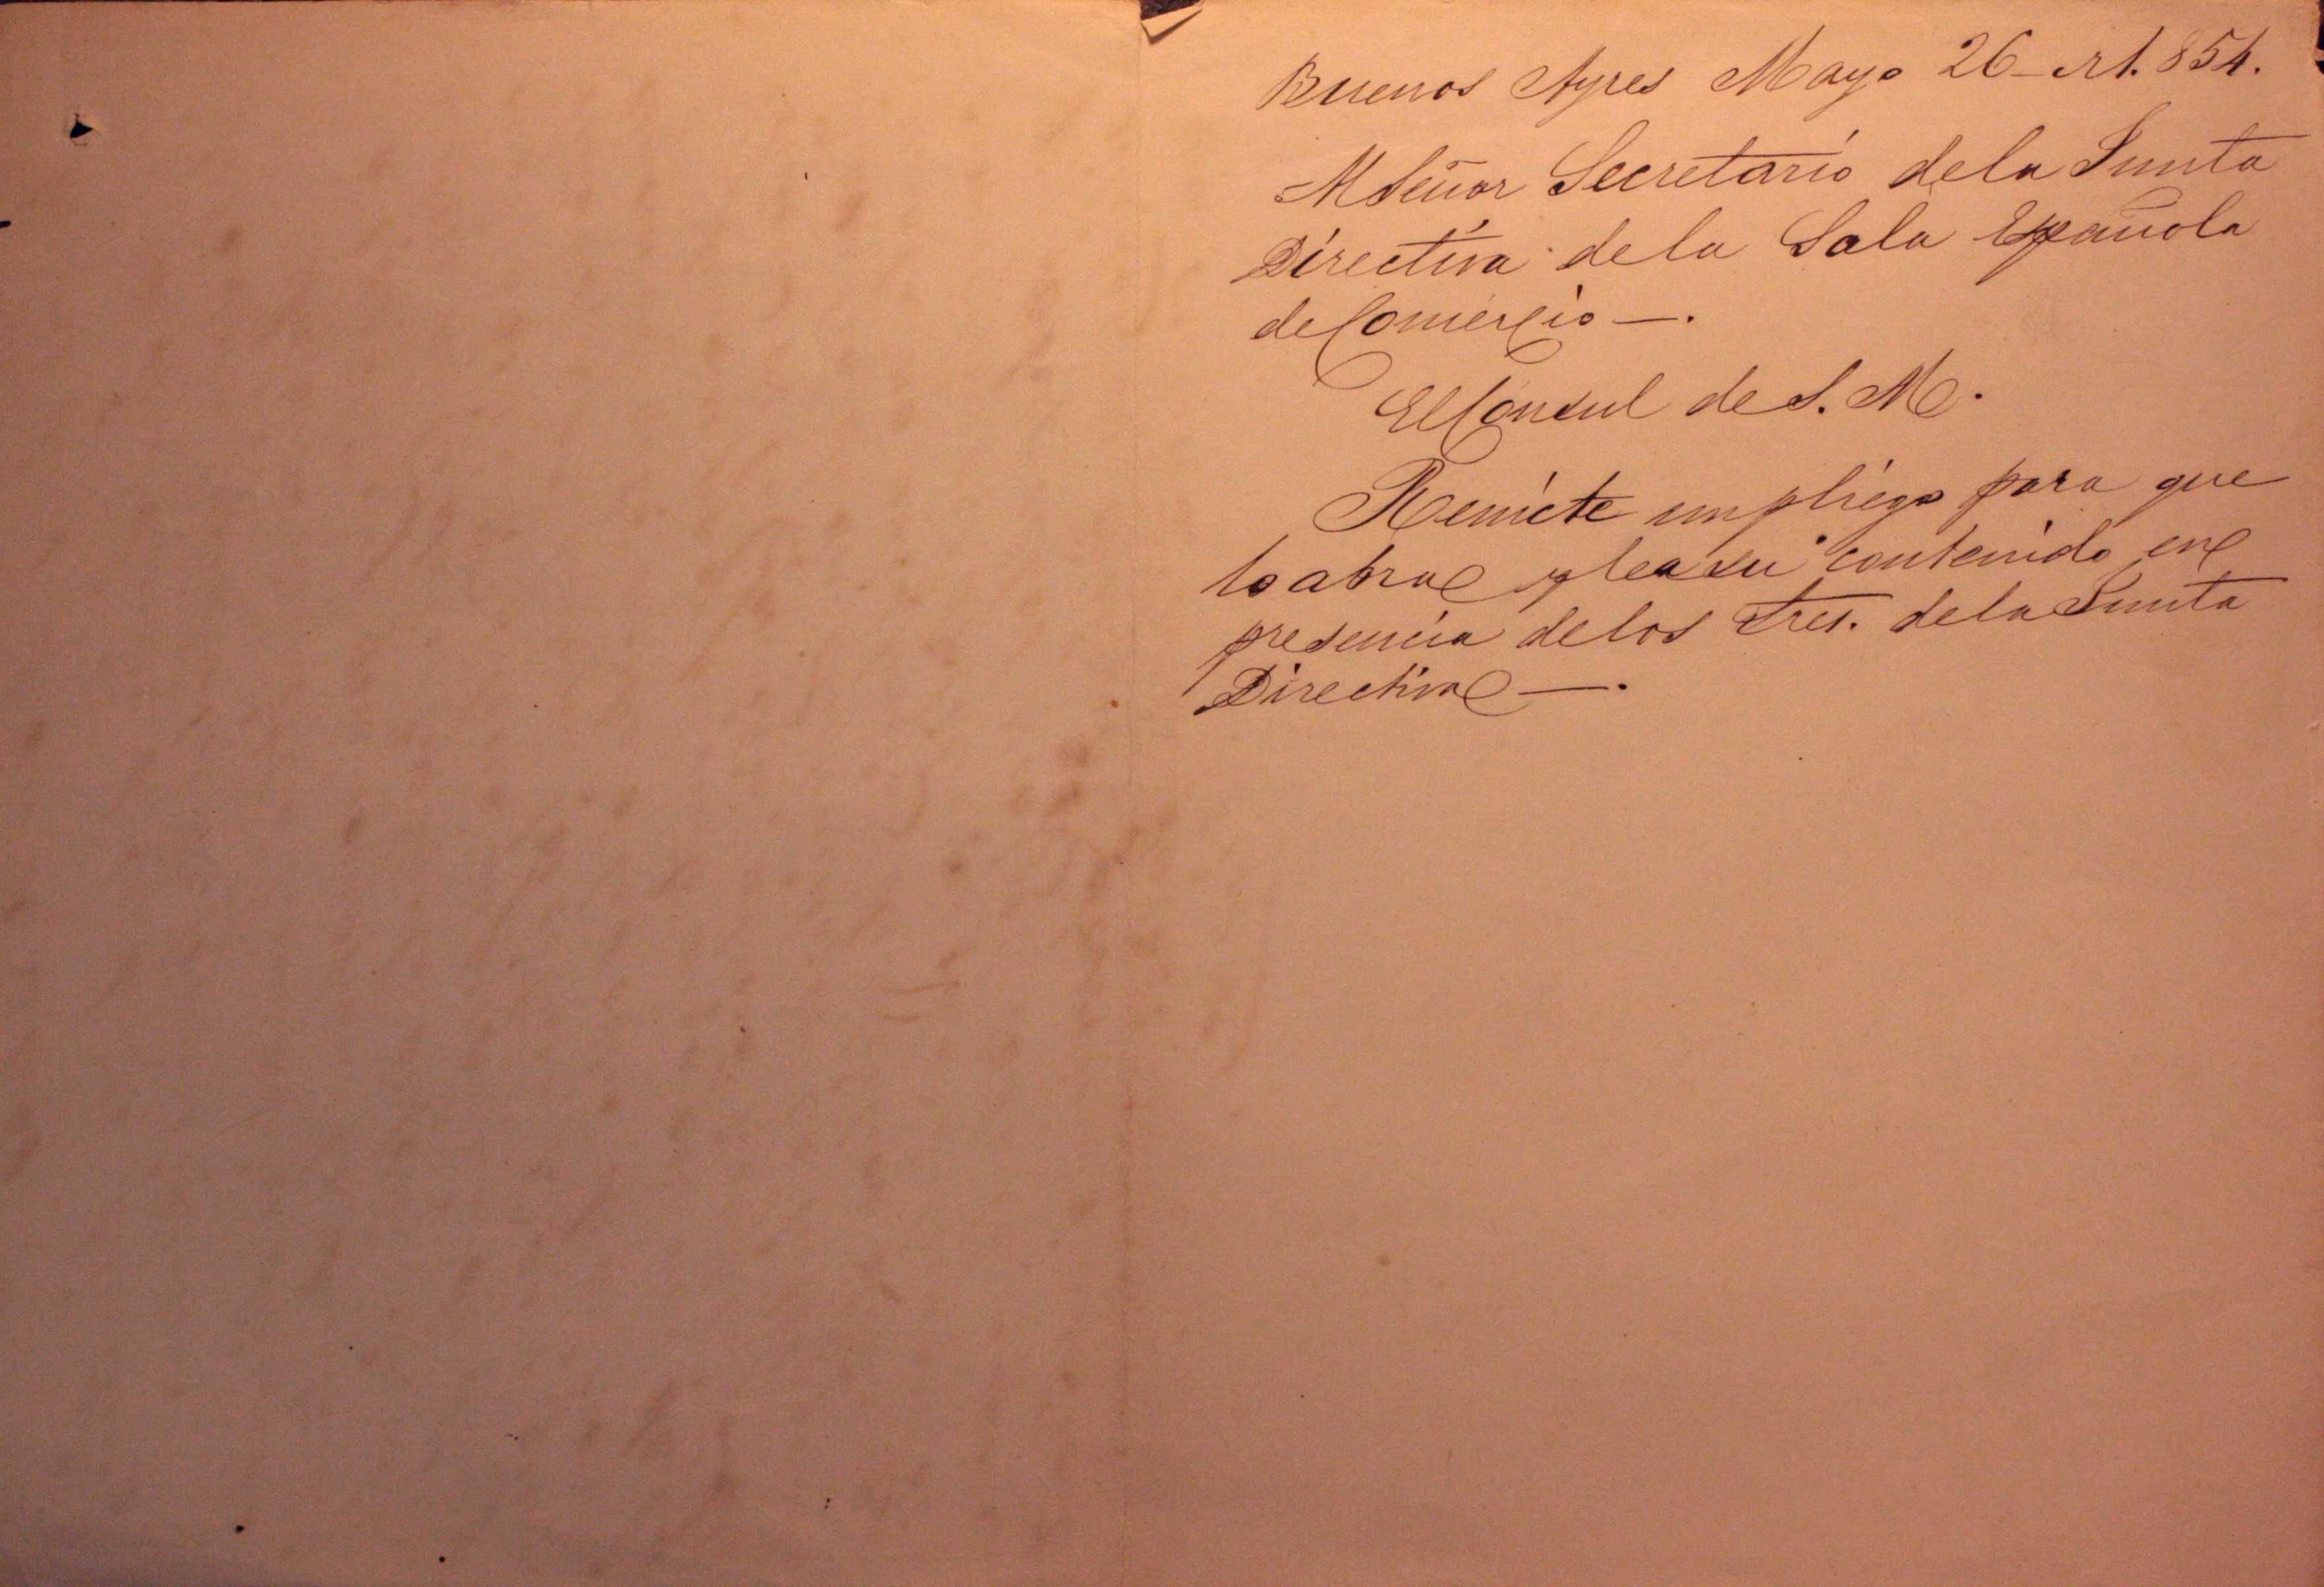 Buenos Ayres Mayo 26 1.854.
Al Señor Secretario de la Junta
Directiva de la Sala Española
de Comercio —.
El Consul de S. M.
Remite un pliego para que
lo abra y lea su contenido en
presencia de los Sres. de la Junta
Directiva —.